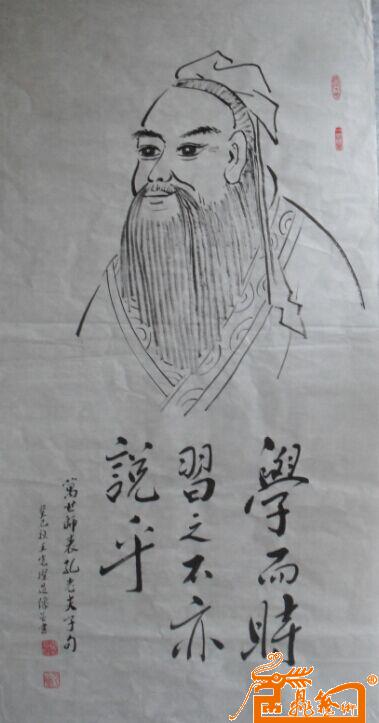 學而時
習之不亦
說乎
萬世師表孔老夫子句
癸巳秋王